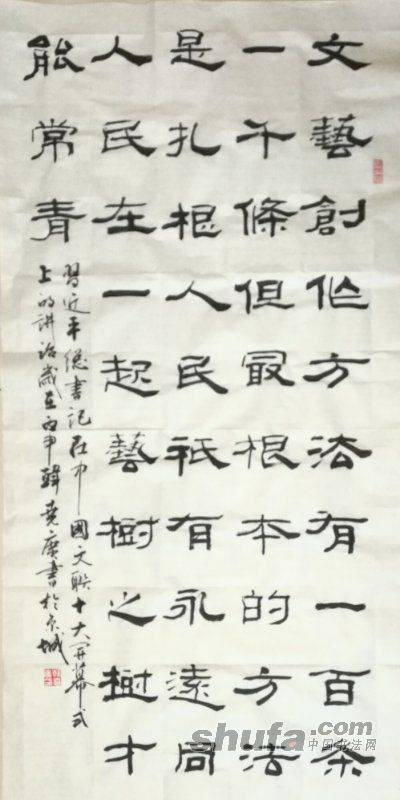 文藝創作方法有一百条
一千條但最根本的方法
是扎根人民祇有永遠同
人民在一起藝樹之樹才
能常青
習近平總書記在中國文聯十大开幕式
上的講話歲在丙申韓堯書於京城
shufa.com
中国书法网